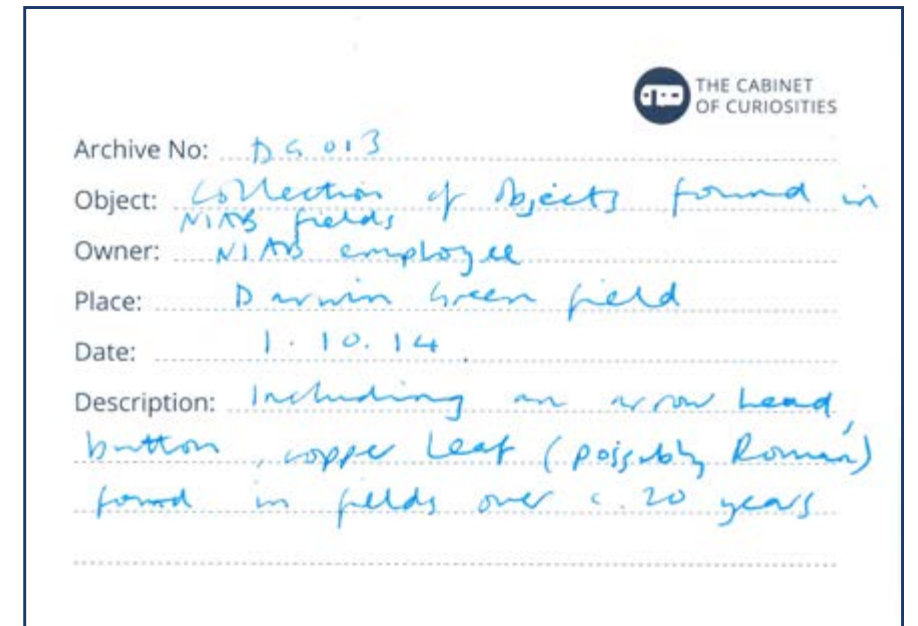 THE CABINET
OF CURIOSITIES
Archive No: DG 013
Object: Collection of objects found in
NIAB fields
Owner: NIAB employee
Place: Darwin Green field
Date: 1.10.14.
Description: Including an arrow head,
button, copper leaf (possibly Roman)
found in fields over c. 20 years